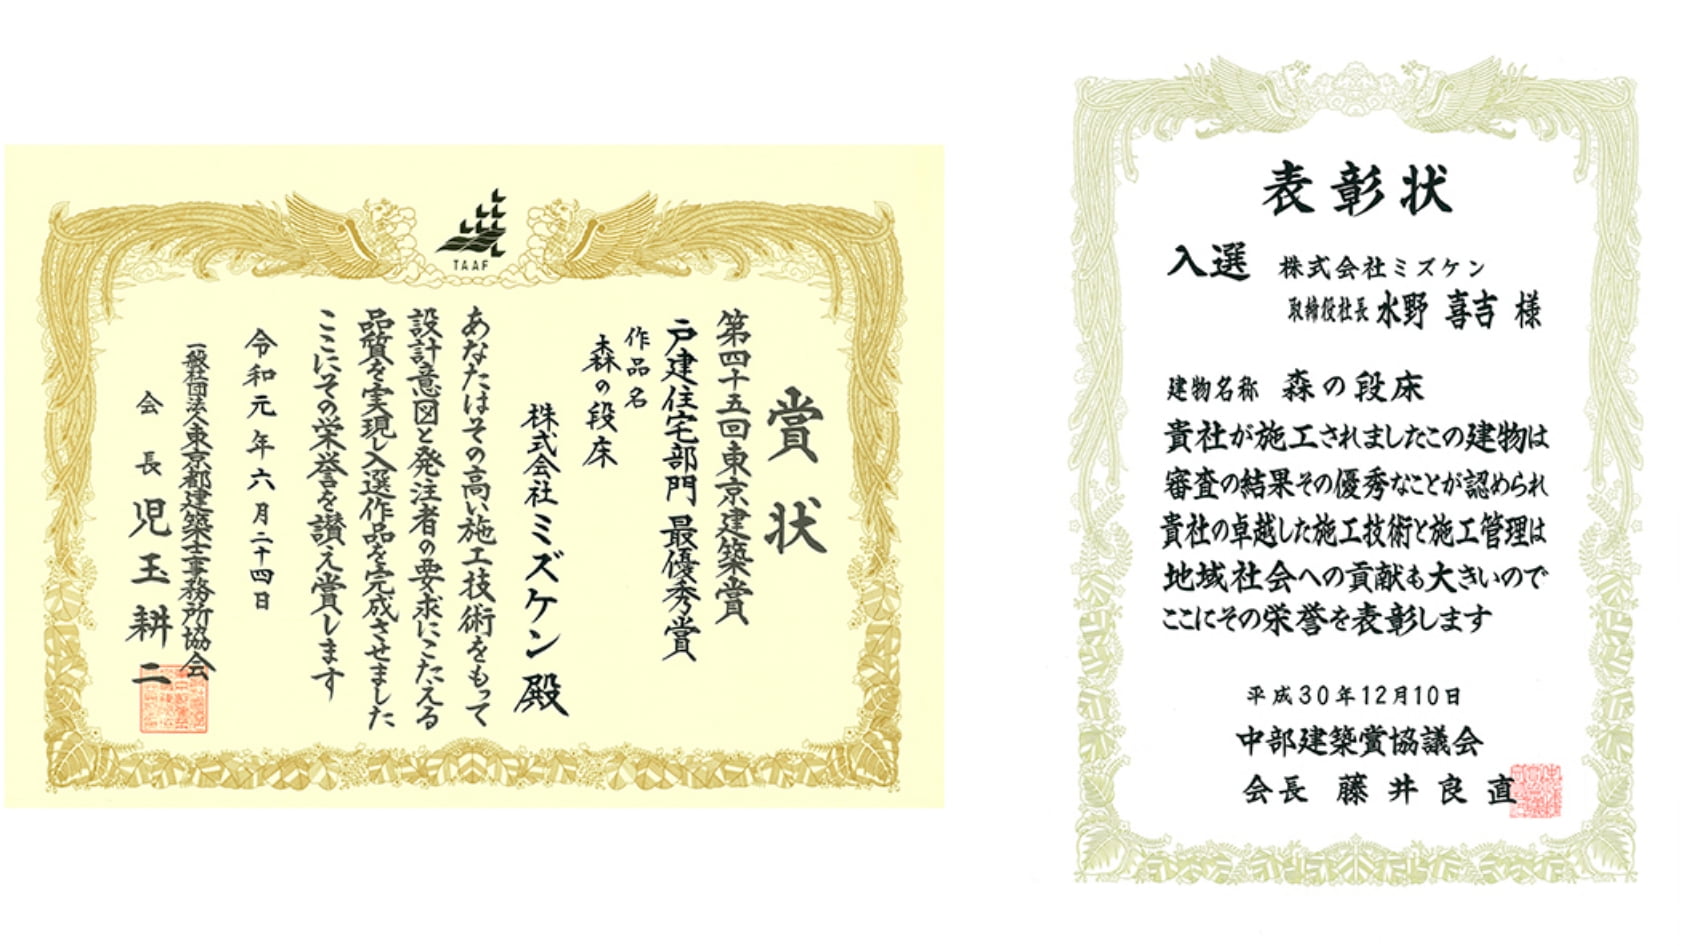 TAAF
賞状
第四十五回東京建築賞
戸建住宅部門 最優秀賞
作品名
森の段床
株式会社ミズケン殿
あなたはその高い施工技術をもって
設計意図と発注者の要求にこたえる
品質を実現し入選作品を完成させました
ここにその栄誉を讃え賞します
令和元年六月二十四日
一般社団法人東京都建築士事務所協会
会長 児玉耕二
表彰状
入選 株式会社ミズケン
取締役社長 水野 喜吉 様
建物名称 森の段床
貴社が施工されましたこの建物は
審査の結果その優秀なことが認められ
貴社の卓越した施工技術と施工管理は
地域社会への貢献も大きいので
ここにその栄誉を表彰します
平成30年12月10日
中部建築賞協議会
会長 藤井良直